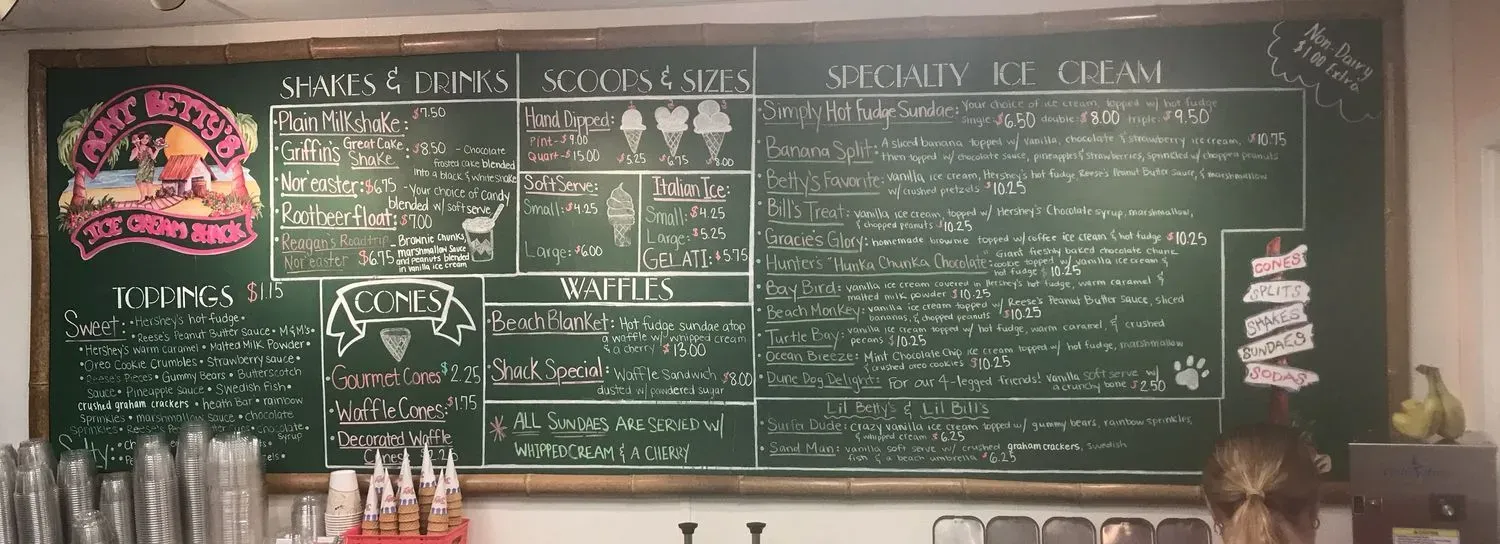 AUNT BETTY'S
ICE CREAM SHACK
SHAKES & DRINKS
Plain Milkshake: $7.50
Griffin's Great Cake Shake: $8.50 - Chocolate
frosted cake blended
into a black & white shake
Nor'easter: $6.75 - Your choice of candy
blended w/ soft serve
Rootbeer float: $7.00
Reagan's Roadtrip - Brownie chunks,
Nor'easter $6.75 marshmallow sauce
and peanuts blended
in vanilla ice cream
SCOOPS & SIZES
Hand Dipped:
Pint - $9.00
Quart - $15.00
$5.25 $6.75 $8.00
Soft Serve:
Small: $4.25
Large: $6.00
Italian Ice:
Small: $4.25
Large: $5.25
GELATI: $5.75
TOPPINGS $1.15
Sweet: • Hershey's hot fudge •
• Reese's Peanut Butter Sauce • M&M's •
• Hershey's warm caramel • Malted Milk Powder •
• Oreo Cookie Crumbles • Strawberry sauce •
• Reese's Pieces • Gummy Bears • Butterscotch
Sauce • Pineapple sauce • Swedish Fish •
crushed graham crackers • heath Bar • rainbow
sprinkles • marshmallow sauce • chocolate
sprinkles • Reese's Peanut Butter cups • chocolate
syrup
Salty:
CONES
Gourmet Cones $2.25
Waffle Cones: $1.75
Decorated Waffle
Cones
WAFFLES
Beach Blanket: Hot fudge sundae atop
a waffle w/ whipped cream
& a cherry $13.00
Shack Special: Waffle Sandwich $8.00
dusted w/ powdered sugar
* ALL SUNDAES ARE SERVED W/
WHIPPED CREAM & A CHERRY
SPECIALTY ICE CREAM
Non-Dairy
$1.00 Extra
Simply Hot Fudge Sundae: Your choice of ice cream, topped w/ hot fudge
single: $6.50 double: $8.00 triple: $9.50
Banana Split: A sliced banana topped w/ vanilla, chocolate & strawberry ice cream, $10.75
then topped w/ chocolate sauce, pineapples & strawberries, sprinkled w/ chopped peanuts
Betty's Favorite: vanilla ice cream, Hershey's hot fudge, Reese's Peanut Butter Sauce, & marshmallow
w/ crushed pretzels $10.25
Bill's Treat: vanilla ice cream, topped w/ Hershey's Chocolate syrup, marshmallow,
& chopped peanuts $10.25
Gracie's Glory: homemade brownie topped w/ coffee ice cream & hot fudge $10.25
Hunter's "Hunka Chunka Chocolate": Giant freshly baked chocolate chunk
cookie topped w/ vanilla ice cream &
hot fudge $10.25
Bay Bird: vanilla ice cream covered in Hershey's hot fudge, warm caramel &
malted milk powder $10.25
Beach Monkey: vanilla ice cream topped w/ Reese's Peanut Butter Sauce, sliced
bananas, & chopped peanuts $10.25
Turtle Bay: vanilla ice cream topped w/ hot fudge, warm caramel, & crushed
pecans $10.25
Ocean Breeze: Mint Chocolate Chip ice cream topped w/ hot fudge, marshmallow
& crushed oreo cookies $10.25
Dune Dog Delight: For our 4-legged friends! vanilla soft serve w/
a crunchy bone $2.50
Lil Betty's & Lil Bill's
Surfer Dude: crazy vanilla ice cream topped w/ gummy bears, rainbow sprinkles,
& whipped cream $6.25
Sand Man: vanilla soft serve w/ crushed graham crackers, swedish
fish & a beach umbrella $6.25
CONES
SPLITS
SHAKES
SUNDAES
SODAS